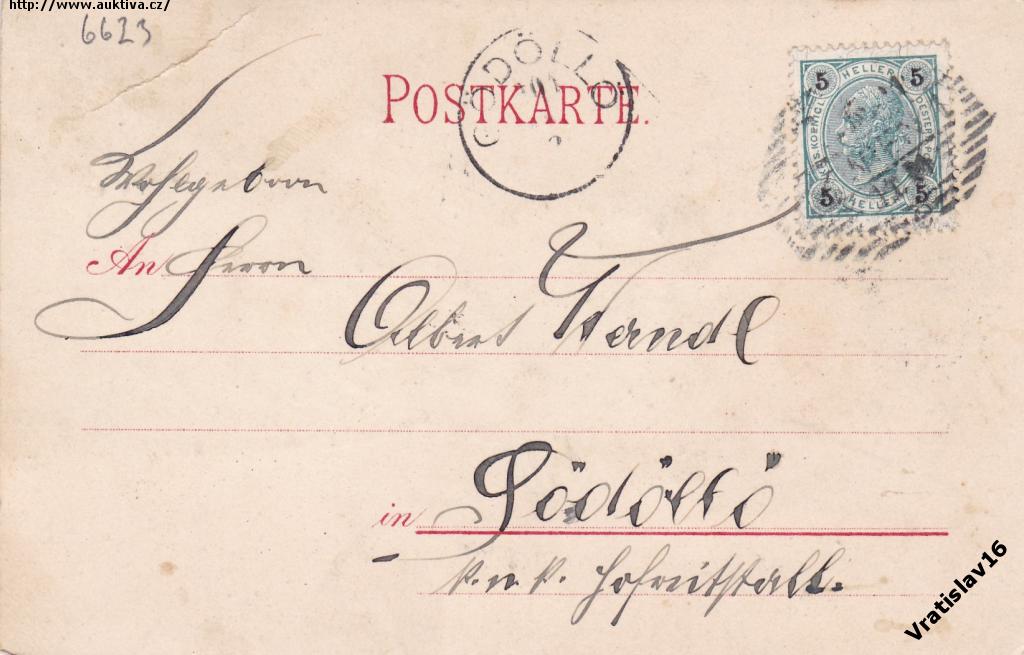 http://www.auktiva.cz/
6623
GÖDÖLLŐ
POSTKARTE.
5 HELLER 5
5 HELLER 5
Wohlgeboren
An Herrn
Albert
in Gödöllö
k. u. k. Hofreitstall.
Vratislav16